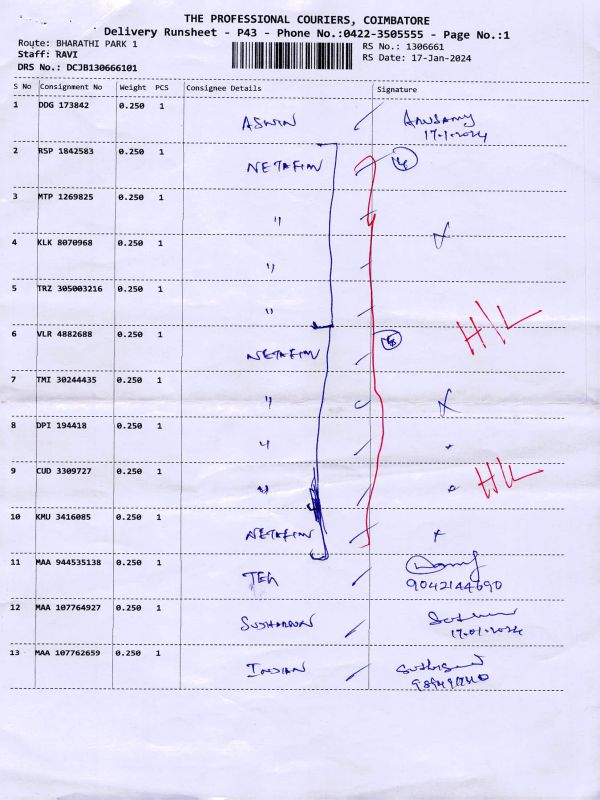 THE PROFESSIONAL COURIERS, COIMBATORE
Delivery Runsheet - P43 - Phone No.:0422-3505555 - Page No.:1
Route: BHARATHI PARK 1
Staff: RAVI
DRS No.: DCJB130666101
RS No.: 1306661
RS Date: 17-Jan-2024
S No Consignment No Weight PCS Consignee Details Signature
1 DDG 173842 0.250 1 ASWIN
17.1.2024
2 RSP 1842583 0.250 1 NETAFIM
3 MTP 1269825 0.250 1 "
4 KLK 8070968 0.250 1 "
5 TRZ 305003216 0.250 1 "
H/L
6 VLR 4882688 0.250 1 NETAFIM
7 TMI 30244435 0.250 1 "
8 DPI 194418 0.250 1 "
9 CUD 3309727 0.250 1 "
10 KMU 3416085 0.250 1 NETAFIM
11 MAA 944535138 0.250 1
9042144690
12 MAA 107764927 0.250 1
17.01.2024
13 MAA 107762659 0.250 1 INDIAN